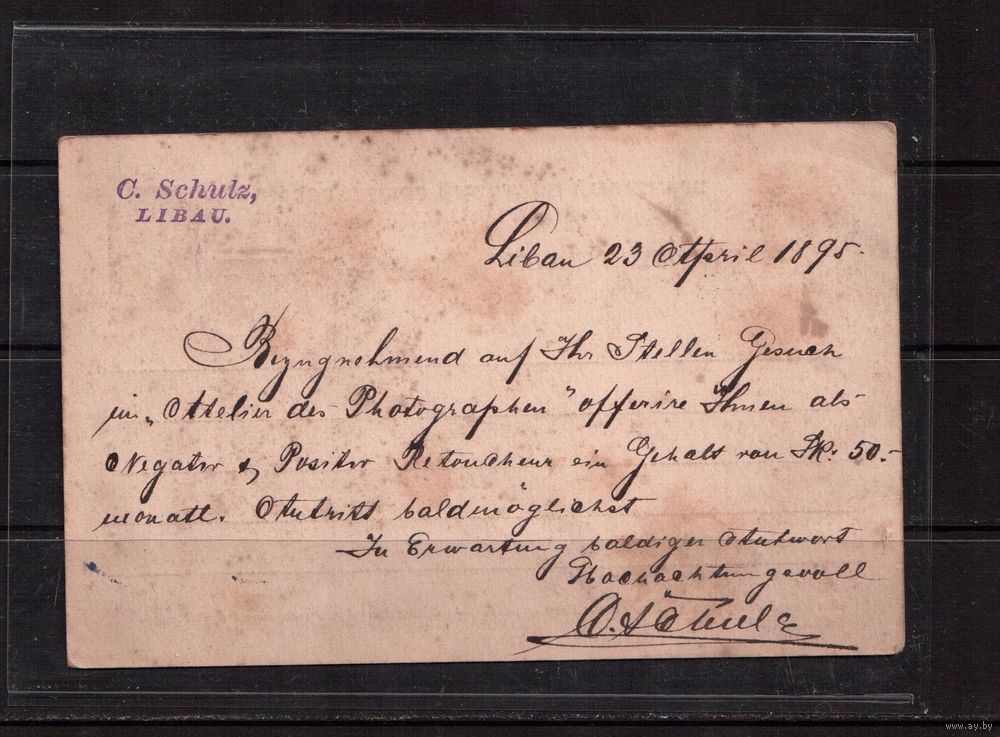 C. Schulz,
LIBAU.
Libau 23 April 1895.
Bezugnehmend auf Ihr Stellen Gesuch
im „Atelier des Photographen“ offerire Ihnen als
Negativ & Positiv Retoucheur ein Gehalt von Rk: 50.-
monatl. Antritt baldmöglichst
In Erwartung baldiger Antwort
Hochachtungsvoll
C. Schulz
www.ay.by